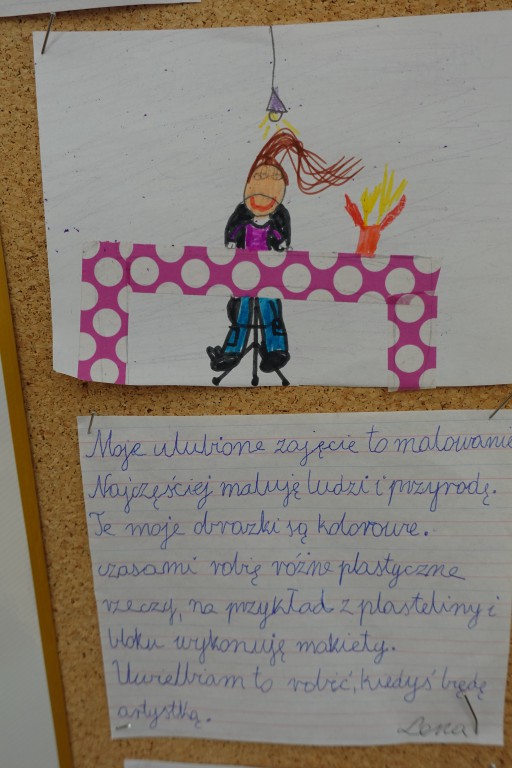 Moje ulubione zajęcie to malowanie
Najczęściej maluję ludzi i przyrodę.
Te moje obrazki są kolorowe.
czasami robię różne plastyczne
rzeczy, na przykład z plasteliny i
bloku wykonuję makiety.
Uwielbiam to robić, kiedyś będę
artystką.